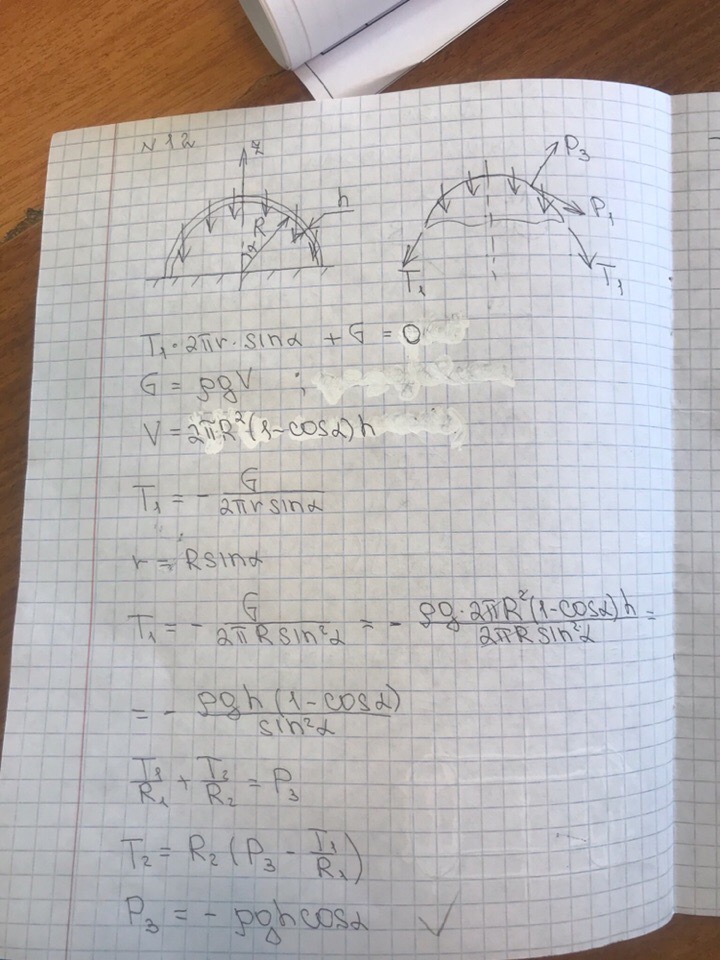 N 12
z
R
α
h
P₃
P₁
T₁
T₁
T₁·2πr·sinα + G = 0
G = ρgV ;
V = 2πR²(1-cosα)h
T₁ = - G/(2πr sinα)
r = R sinα
T₁ = - G/(2πR sin²α) = - ρg·2πR²(1-cosα)h/(2πR sin²α) =
= - ρgh(1-cosα)/sin²α
T₁/R₁ + T₂/R₂ = P₃
T₂ = R₂(P₃ - T₁/R₁)
P₃ = - ρgh cosα